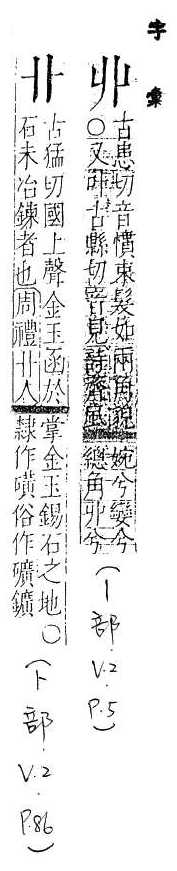 字彙
丱
古患切音慣束髮如兩角貌
○又叶古縣切音見詩齊風
婉兮孌兮
總角丱兮
(丨部.V.2
P.5)
卝
古猛切國上聲金玉函於
石未冶鍊者也周禮卝人
掌金玉錫石之地○
隸作磺俗作礦鑛
(卜部.V.2
P.86)